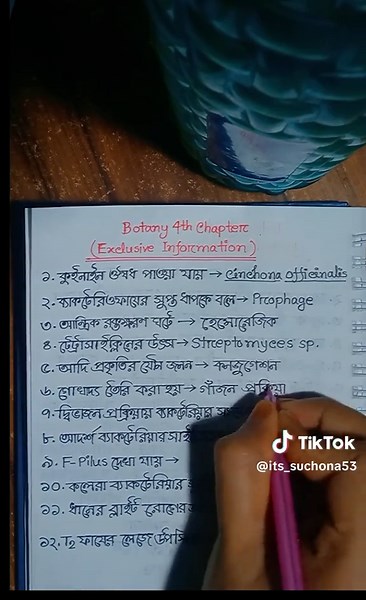 Botany 4th Chapter
(Exclusive Information)
১. কুইনাইন ঔষধ পাওয়া যায় → Cinchona officinalis
২. ব্যাকটেরিওফাযের সুপ্ত ধাপকে বলে → Prophage
৩. আন্ত্রিক রক্তক্ষরণ ঘটে → হেমোরেজিক
৪. টেট্রাসাইক্লিনের উৎস → Streptomyces sp.
৫. আদি প্রকৃতির যৌন জনন → কনজুগেশন
৬. গোখাদ্য তৈরি করা হয় → গাঁজন প্রক্রিয়া
৭. দ্বিভাজন প্রক্রিয়ায় ব্যাকটেরিয়ার
৮. আদর্শ ব্যাকটেরিয়ার সাই
৯. F-Pilus দেখা যায় →
১০. কলেরা ব্যাকটেরিয়ার
১১. ধানের ব্লাইট রোগের
১২. T₂ ফাযের লেজে
TikTok
@its_suchona53